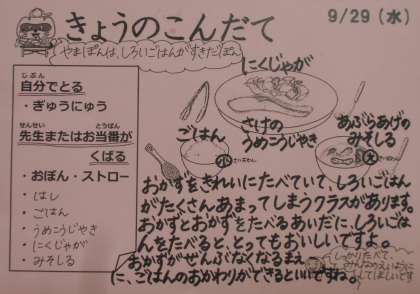 きょうのこんだて
9/29(水)
やまぽんは、しろいごはんがすきだぽん
自分でとる
・ぎゅうにゅう
先生またはお当番が
くばる
・おぼん・ストロー
・はし
・ごはん
・うめこうじやき
・にくじゃが
・みそしる
にくじゃが
ごはん
さけの
うめこうじやき
あぶらあげの
みそしる
小
大
おかずをきれいにたべていて、しろいごはん
がたくさんあまってしまうクラスがあります。
おかずとおかずをたべるあいだに、しろいごは
んをたべると、とってもおいしいですよ。
おかずがぜんぶなくなるまえ
に、ごはんのおかわりができるといいですね。
しっかりたべて、